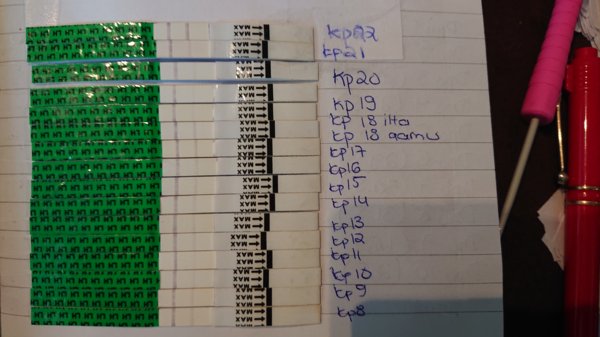 kp22
kp21
kp20
kp19
kp 18 ilta
kp 18 aamu
kp17
kp16
kp15
kp14
kp13
kp12
kp11
kp10
kp9
kp8
MAX
MAX
MAX
MAX
MAX
MAX
MAX
MAX
MAX
MAX
MAX
MAX
MAX
MAX
MAX
MAX